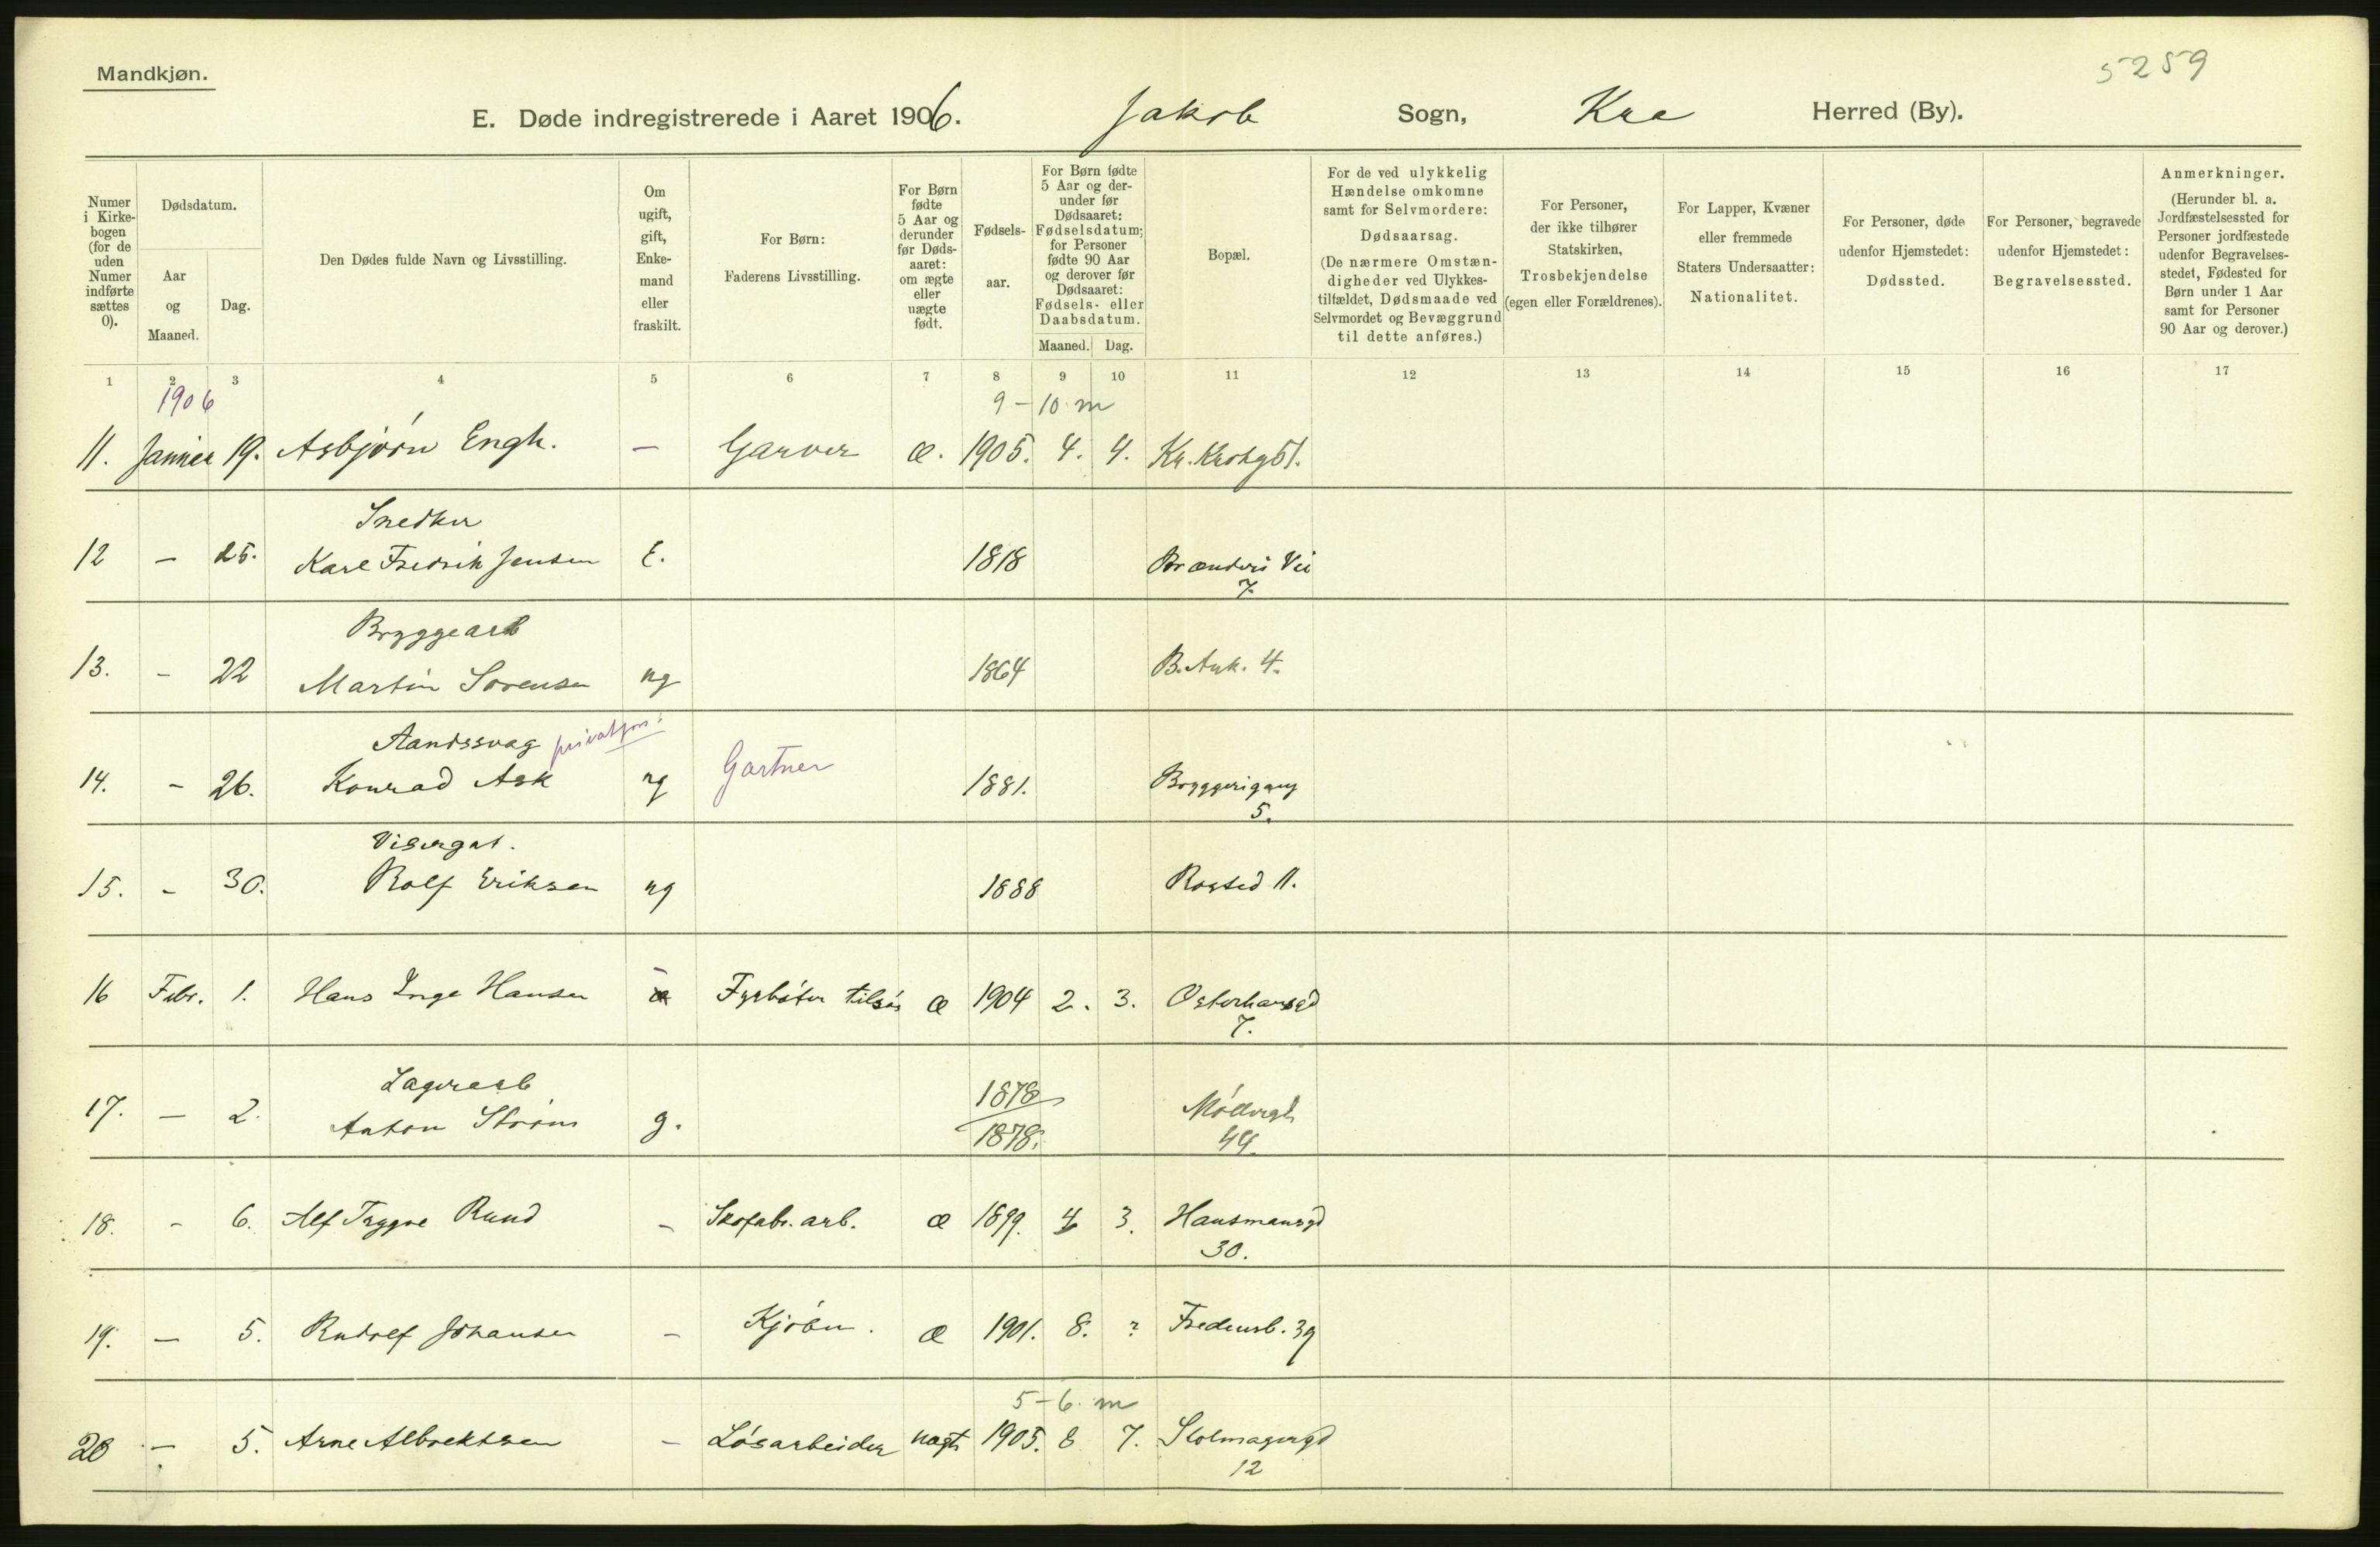 5259
Mandkjøn.
E. Døde indregistrerede i Aaret 1906. Jakob Sogn, Kra Herred (By).
Numer i Kirkebogen (for de uden Numer indførte sættes 0).
Dødsdatum.
Aar og Maaned.
Dag.
Den Dødes fulde Navn og Livsstilling.
Om ugift, gift, Enkemand eller fraskilt.
For Børn: Faderens Livsstilling.
For Børn fødte 5 Aar og derunder før Dødsaaret: om ægte eller uægte født.
Fødselsaar.
For Børn fødte 5 Aar og derunder før Dødsaaret: Fødselsdatum; for Personer fødte 90 Aar og derover før Dødsaaret: Fødsels- eller Daabsdatum.
Maaned. Dag.
Bopæl.
For de ved ulykkelig Hændelse omkomne samt for Selvmordere: Dødsaarsag. (De nærmere Omstændigheder ved Ulykkestilfældet, Dødsmaade ved Selvmordet og Bevæggrund til dette anføres.)
For Personer, der ikke tilhører Statskirken, Trosbekjendelse (egen eller Forældrenes).
For Lapper, Kvæner eller fremmede Staters Undersaatter: Nationalitet.
For Personer, døde udenfor Hjemstedet: Dødssted.
For Personer, begravede udenfor Hjemstedet: Begravelsessted.
Anmerkninger. (Herunder bl. a. Jordfæstelsessted for Personer jordfæstede udenfor Begravelsesstedet, Fødested for Børn under 1 Aar samt for Personer 90 Aar og derover.)
1 2 3 4 5 6 7 8 9 10 11 12 13 14 15 16 17
1906 9-10 m
11. Januar 19. Asbjørn Engh. — Garver æ. 1905. 4. 4. Kr. Krohg 51.
Snedker
12 — 25. Karl Fredrik Jensen E. 1818 Brænderi Vei
7.
Bryggearb
13. - 22 Martin Sørensen ug 1864 B. Ank. 4.
Aandssvag
14. - 26. Konrad Ask ug Gartner 1881. Bryggerigang
5.
Visergut.
15. - 30. Rolf Eriksen ug 1888 Rosted 11.
16 Febr. 1. Hans Inge Hansen - Fyrbøter æ 1904 2. 3. Osterhausgd
7.
Lagerarb 1878
17. — 2. Anton Strøm g. 1878. Møllergt
44.
18. - 6. Alf Trygve Ruud - Skofabr. arb. æ 1899. 4 3. Hausmansgd
30.
19. — 5. Rudolf Johansen - Kjøbm. æ 1901. 8. ? Fredensb. 39
5-6 m
20 — 5. Arne Albrektsen - Løsarbeider uægt 1905. 8 7. Stolmagergd
12